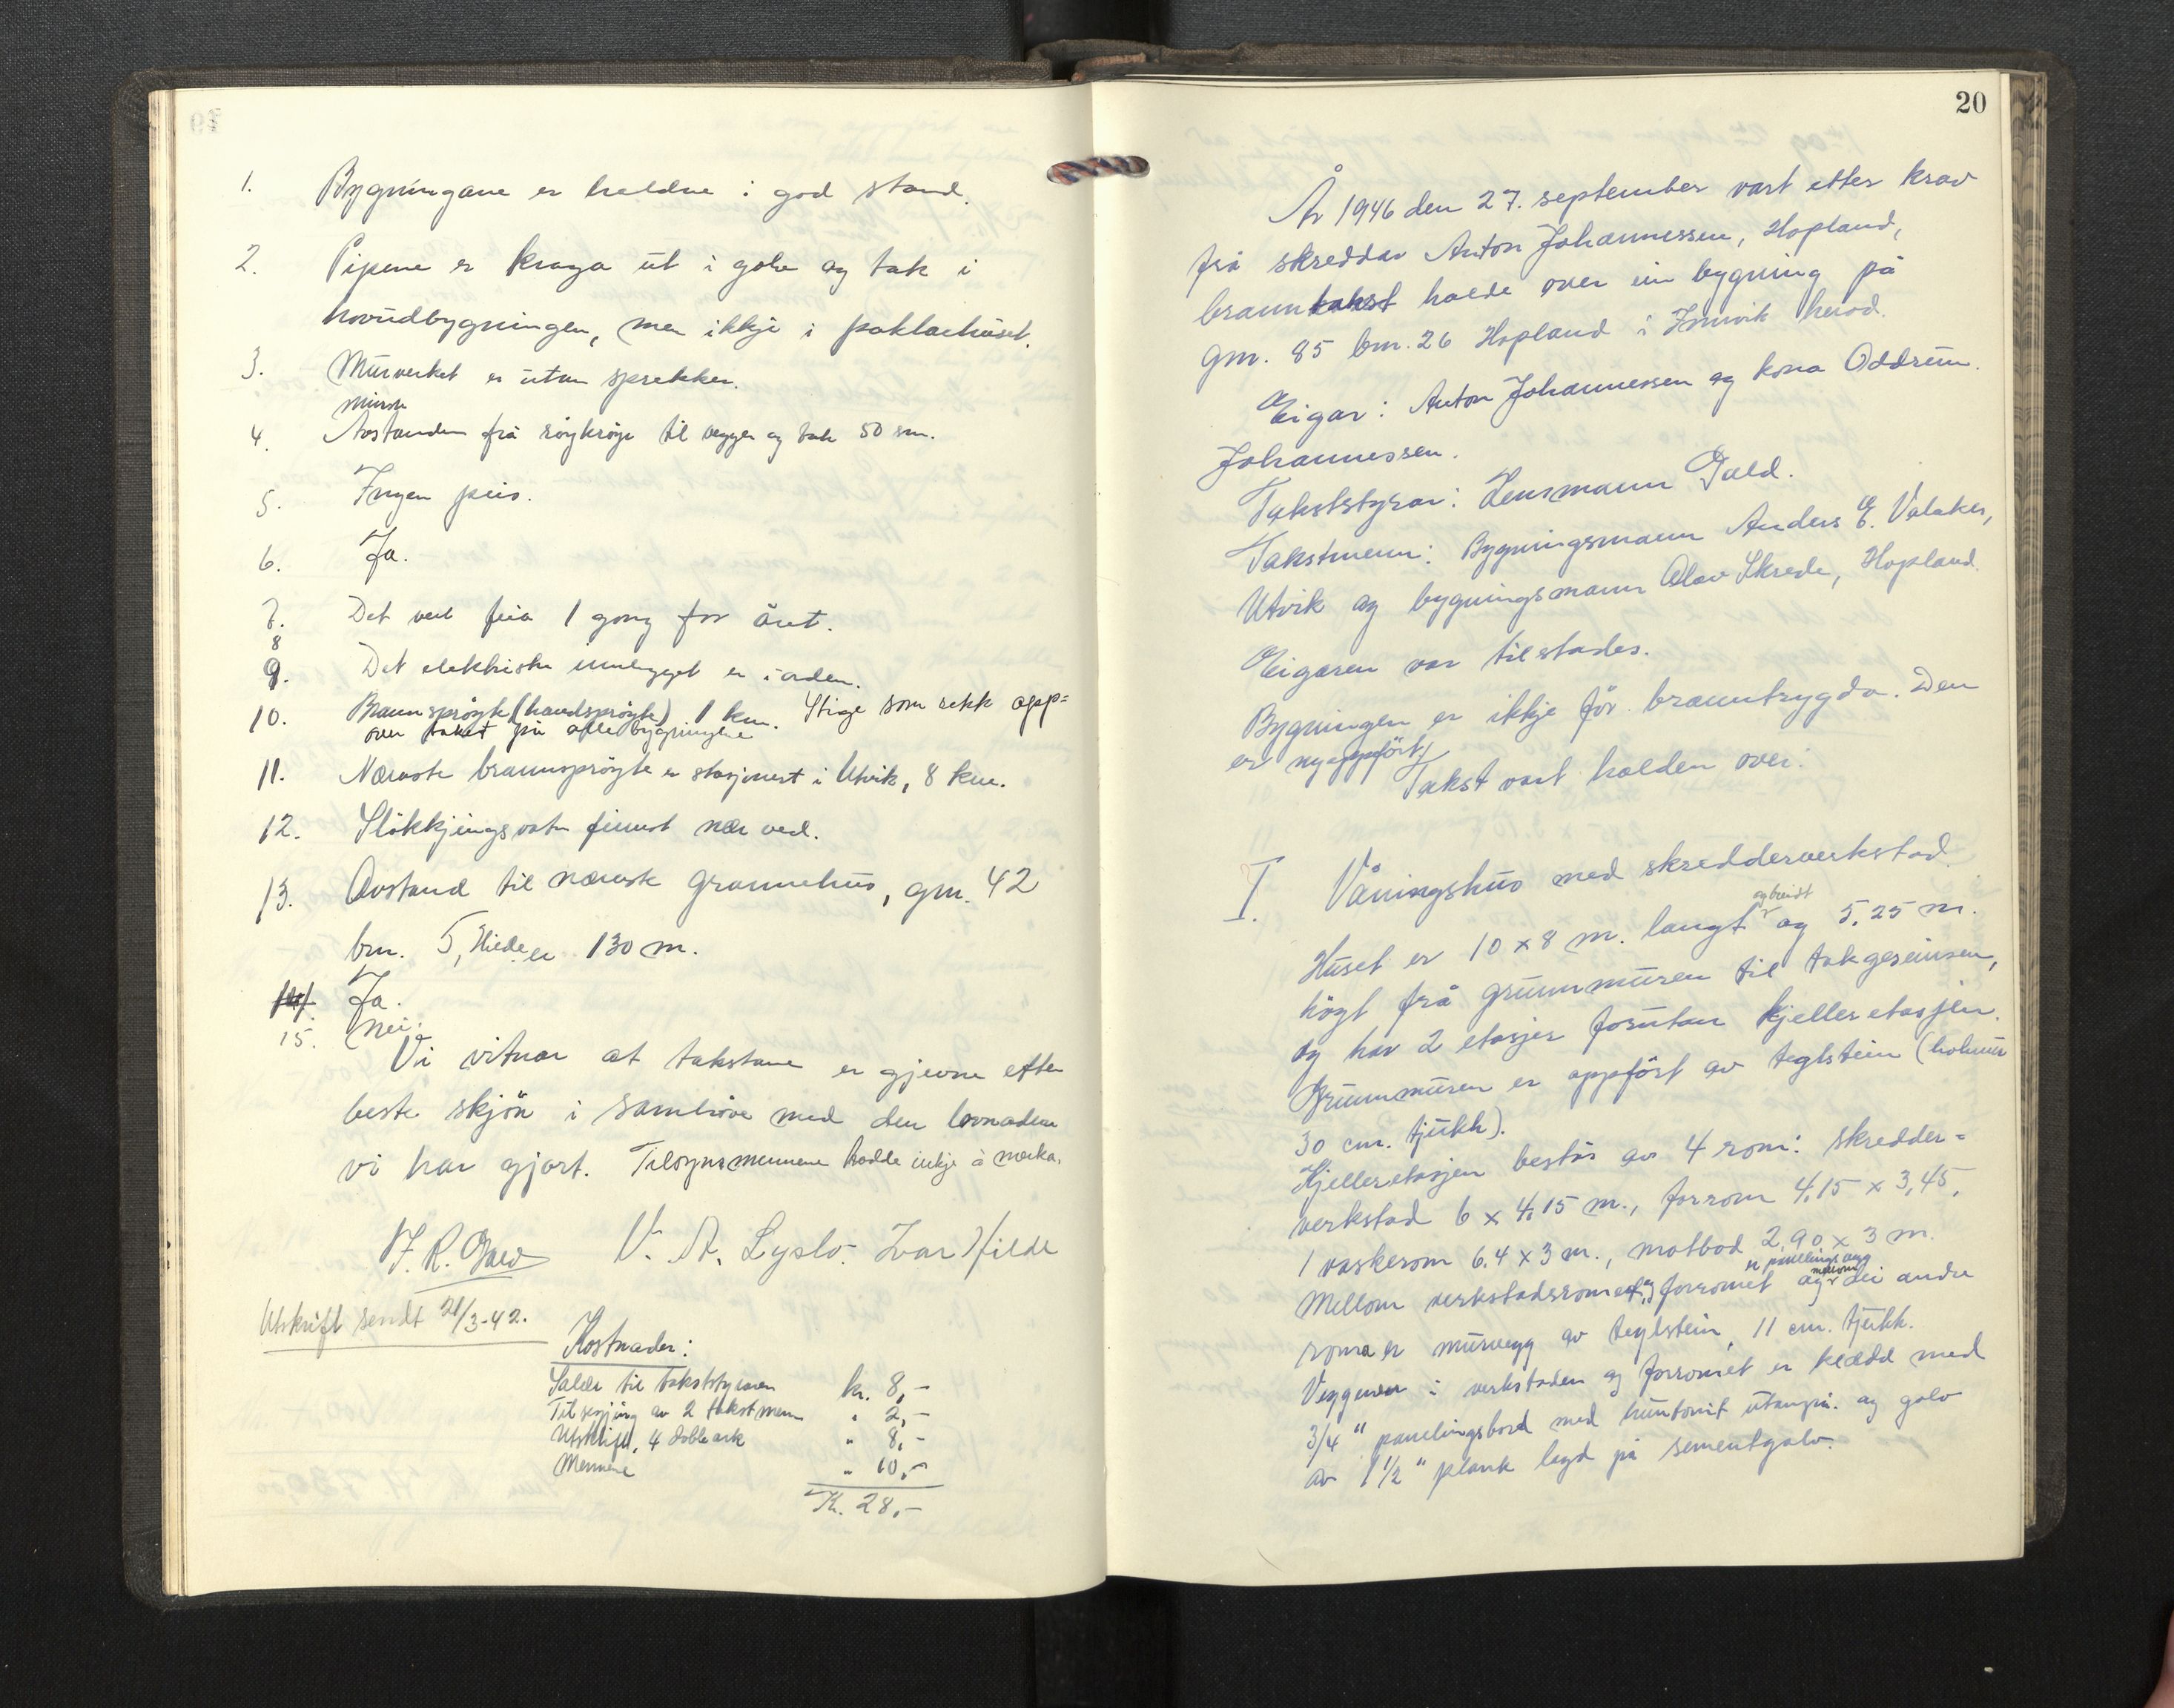 1. Bygningane er haldne i god stand.
2. Pipene er kraga ut i golv og tak i
hovudbygningen, men ikkje i
3. Murverket er utan sprekker.
minste
4. Avstanden frå røykrøyr til vegger og tak 50 sm.
5. Ingen peis.
6. Ja.
7. Det vert feia 1 gong for året.
8
9. Det elektriske innlegget er i orden.
10. Brannsprøyte (handsprøyte) 1 km. Stige som rekk opp=
over taket på alle bygningene
11. Næraste brannsprøyte er stasjonert i Utvik, 8 km.
12. Sløkkjingsvatn finnst nær ved.
13. Avstand til næraste grannehus, gnr. 42
bnr. 5, Hilde er 130 m.
14. Ja.
15. Nei.
Vi vitnar at takstane er gjevne etter
beste skjøn i samhøve med den lovnaden
vi har gjort. Tilsynsmennene hadde inkje å merka.
J. R. Gald V. A. Lyslo. Ivar Hilde
Utskrift sendt 21/3-42.
Kostnader:
Salær til takststyraren kr. 8,-
Tilseijing av 2 takstmenn " 2,-
Utskrift, 4 dobleark " 8,-
Mennene " 10,-
Kr. 28,-
20
År 1946 den 27. september vart etter krav
frå skreddar Anton Johannessen, Hopland,
branntakst halde over ein bygning på
gnr. 85 bnr. 26 Hopland i Innvik herad.
Eigar: Anton Johannessen og kona Oddrun
Johannessen.
Takststyrar: Lensmann Gald.
Takstmenn: Bygningsmann Anders E. Valaker,
Utvik og bygningsmann Olav Skrede, Hopland.
Eigaren var tilstades.
Bygningen er ikkje før branntrygda. Den
er nyoppført.
Takst vart halden over:
I. Våningshus med skredderverkstad.
og breidt
Huset er 10 x 8 m. langt og 5,25 m.
høgt frå grunnmuren til takgesimsen,
og har 2 etasjer forutan kjelleretasjen.
Grunnmuren er oppført av teglstein (holmur
30 cm. tjukk).
Kjelleretasjen består av 4 rom: skredder=
verkstad 6 x 4,15 m., forrom 4,15 x 3,45,
1 vaskerom 6,4 x 3 m., matbod 2,90 x 3 m.
er panelingsveg
mellom
Mellom verkstadsromet og forromet og dei andre
roma er murvegg av teglstein, 11 cm. tjukk.
Veggene i verkstaden og forromet er kledd med
3/4 " panelingsbord med huntonit utanpå. og golv
av 1 1/2 " plank lagd på sementgolv.